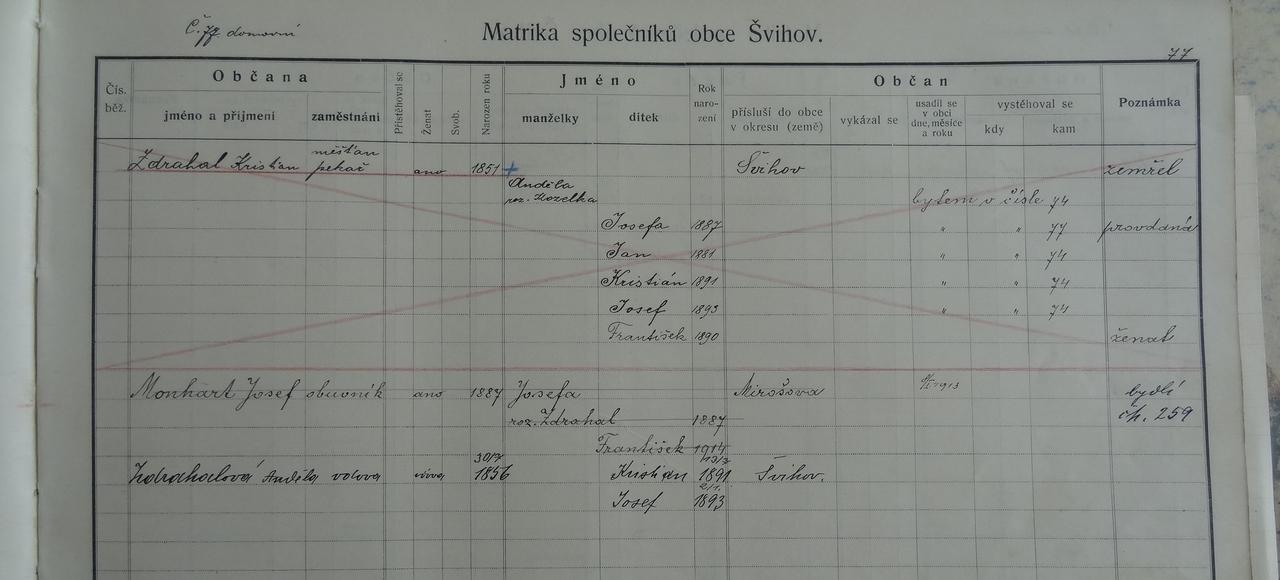 Č. 77 domovní
Matrika společníků obce Švihov.
77
Čís. běž.
Občana
jméno a příjmení
zaměstnání
Přistěhoval se
Ženat
Svob.
Narozen roku
Jméno
manželky
dítek
Rok naro- zení
Občan
přísluší do obce v okresu (země)
vykázal se
usadil se v obci dne, měsíce a roku
vystěhoval se
kdy
kam
Poznámka
měšťan
Zdrahal Kristian pekař ano 1851 + Švihov zemřel
Anděla
roz. Kozelka bytem v čísle 74
Josefa 1887 " " 77 provdaná
Jan 1881 " " 74
Kristián 1891 " " 74
Josef 1893 " " 74
František 1890 ženat
Monhart Josef obuvník ano 1887 Josefa Mirošova 1913 bydlí
roz. Zdrahal 1887 čp. 259
František 1914
30/7 13/3
Zdrahalová Anděla vdova vdova 1856 Kristian 1891 Švihov.
Josef 1893